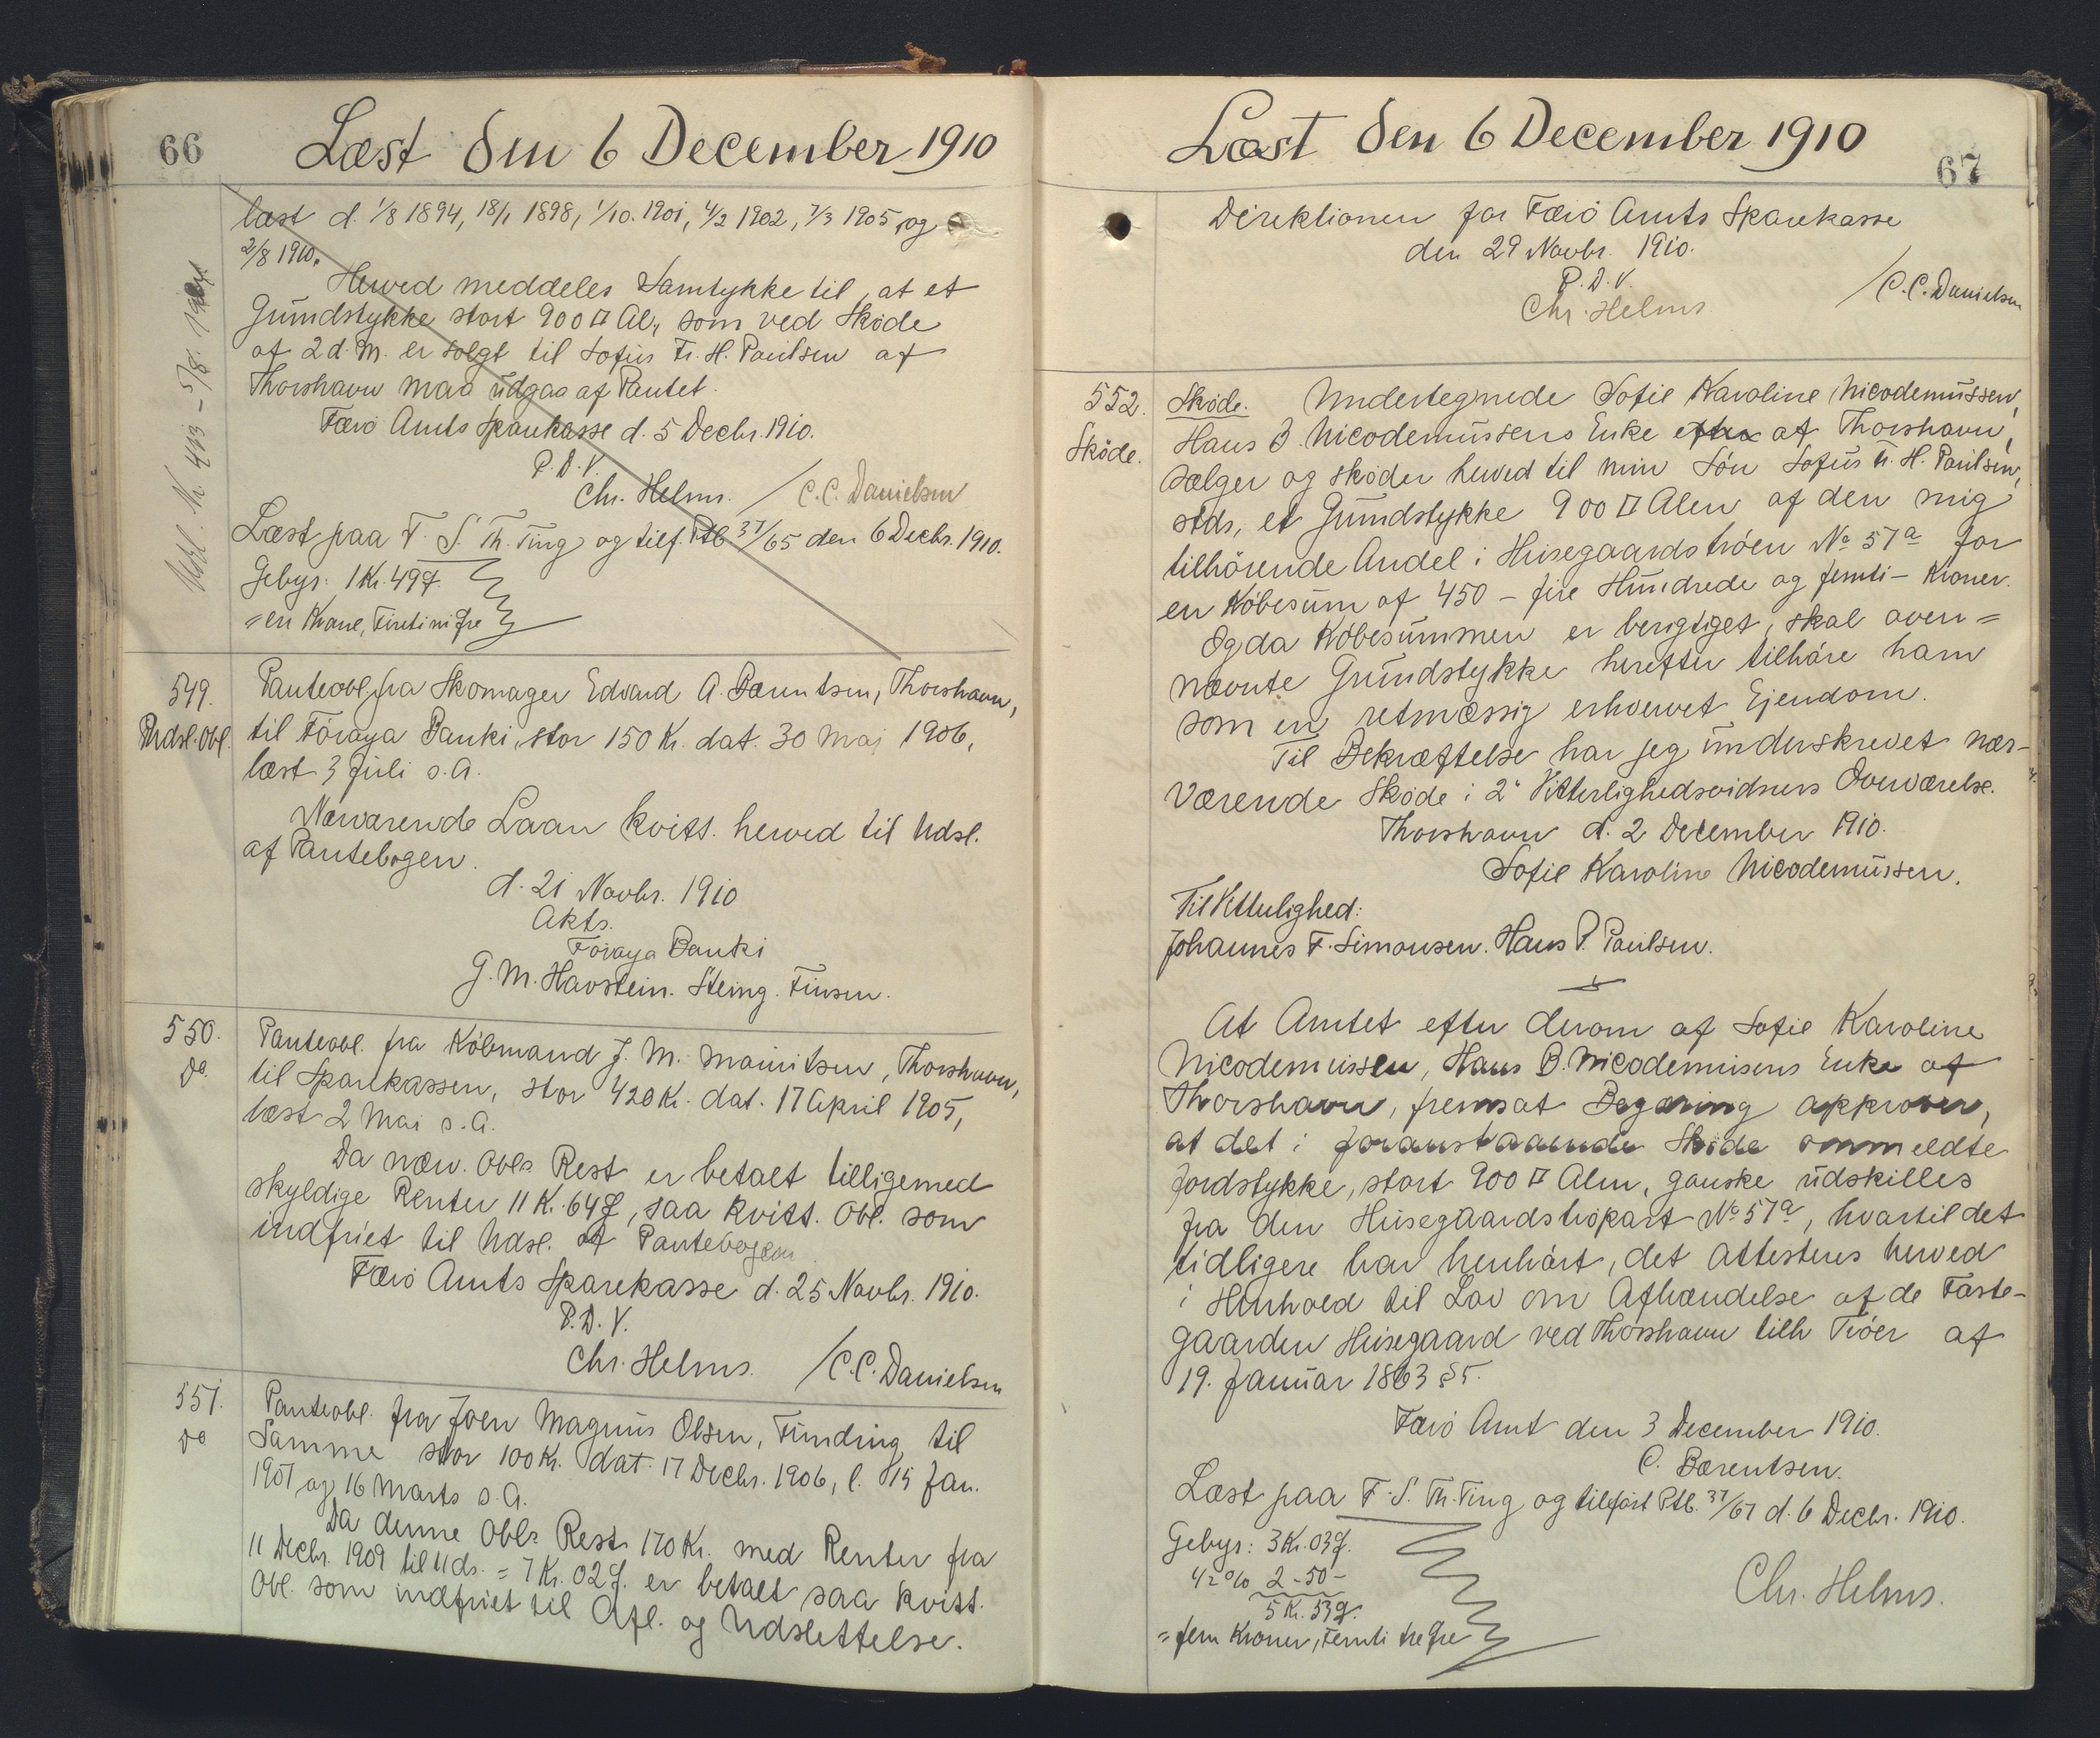 66
Læst den 6 December 1910
læst d. 1/8 1894, 18/1 1898, 1/10. 1901, 4/2 1902, 7/3 1905, og
2/8 1910.
Herved meddeles Samtykke til, at et
Grundstykke stort 900 □ Al., som ved Skøde
af 2 d. M. er solgt til Sofus Fr. H. Paulsen af
Thorshavn maa udgaa af Pantet.
Færø Amts Sparekasse d. 5 Decbr. 1910.
P.D.V.
Chr. Helms. / C.C. Danielsen
Læst paa F. S. Th. Ting og tilf. Ptb 37/65 den 6 Decbr. 1910.
Gebyr: 1 Kr. 49 Ø.
= en Krone, Firetini Øre
549.
Udsl. Obl.
Panteobl. fra Skomager Edvard A. Bærentsen, Thorshavn,
til Föroya Banki, stor 150 Kr. dat. 30 Maj 1906,
læst 3 Juli s.A.
Nærværende Laan kvitt. herved til Udsl.
af Pantebogen.
d. 21 Novbr. 1910
Akts.
Föroya Banki
G. M. Havstein. Steing. Finsen.
550.
Do
Panteobl. fra Købmand J. M. Mouritsen, Thorshavn,
til Sparekassen, stor 420 Kr. dat. 17 April 1905,
læst 2 Mai s.A.
Da nærv. Obls Rest er betalt tilligemed
skyldige Renter 11 K. 64 Ø, saa kvitt. Obl. som
indfriet til Udsl. af Pantebogen
Færø Amts Sparekasse d. 25 Novbr. 1910.
P.D.V.
Chr. Helms. / C.C. Danielsen
551.
Do
Panteobl. fra Joen Magnus Olsen, Funding til
Samme stor 100 Kr. dat. 17 Decbr. 1906, l. 15 Jan.
1907 og 16 Marts s.A.
Da denne Obls Rest 170 Kr. med Renter fra
11 Decbr. 1909 til Uds. = 7 Kr. 02 Ø. er betalt saa kvitt.
Obl. som indfriet til Afl. og Udslettelse.
Læst den 6 December 1910
67
Direktionen for Færö Amts Sparekasse
den 29 Novbr. 1910.
P.D.V.
Chr. Helms. / C.C. Danielsen
552.
Sköde.
Sköde. Undertegnede Sofie Karoline Nicodemussen,
Hans B. Nicodemussens Enke efter af Thorshavn,
sælger og sköder herved til min Sön Sofus Fr. H. Paulsen,
stds, et Grundstykke 900 □ Alen af den mig
tilhörende Andel i Husegaardströen No 57a for
en Köbesum af 450 - fire Hundrede og femti - Kroner.
Og da Köbesummen er berigtiget, skal oven=
nævnte Grundstykke herefter tilhöre ham
som en retmæssig erhvervet Ejendom.
Til Bekræftelse har jeg underskrevet nær-
værende Sköde i 2 Vitterlighedsvidners Overværelse.
Thorshavn d. 2 December 1910.
Sofie Karoline Nicodemussen.
Til Vitterlighed:
Johannes F. Simonsen. Hans P. Paulsen.
At Amtet efter derom af Sofie Karoline
Nicodemussen, Hans B. Nicodemusens Enke af
Thorshavn, fremsat Begæring approver,
at det i foranstaaende Sköde ommeldte
Jordstykke, stort 900 □ Alen, ganske udskilles
fra den Husegaardströpart No 57a, hvortil det
tidligere har henhört, det attesteres herved
i Henhold til Lov om Afhændelse af de Fæste-
gaarden Husegaard ved Thorshavn tilh Tröer af
19. Januar 1863 § 5.
Færö Amt den 3 December 1910.
C. Bærentsen.
Læst paa F. S. Th. Ting og tilfört Ptb. 37/67 d. 6 Decbr. 1910.
Gebyr: 3 Kr. 03 Ø.
½ % 2 - 50 -
5 Kr. 53 Ø.
= fem Kroner, Femti tre Øre
Chr. Helms.